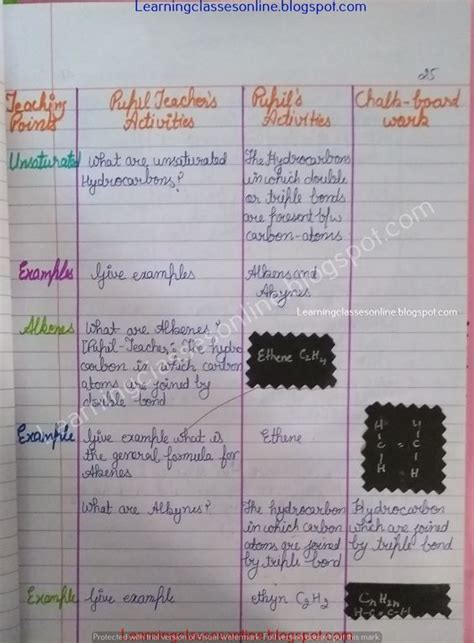 Learningclassesonline.blogspot.com
25
Teaching Points
Pupil Teacher's Activities
Pupil's Activities
Chalk-board work
Unsaturated
What are unsaturated
Hydrocarbons?
The Hydrocarbons
in which double
or triple bonds
are present b/w
carbon-atoms
Examples
Give examples
Alkens and
Alkynes
Learningclassesonline.blogspot.com
Alkenes
What are Alkenes?
[Pupil-Teacher] The hydro
carbon in which carbon
atoms are joined by
double-bond
Ethene C2H4
Example
Give example what is
the general formula for
Alkenes
Ethene
H H
C = C
H H
What are Alkynes?
The hydrocarbon
in which carbon
atoms are joined
by triple bond
Hydrocarbon
which are joined
by triple bond
Example
Give example
ethyn C2H2
CnH2n
H-C≡C-H
Learningclassesonline.blogspot.com
Protected with trial version of Visual Watermark. Full version doesn't put this mark.